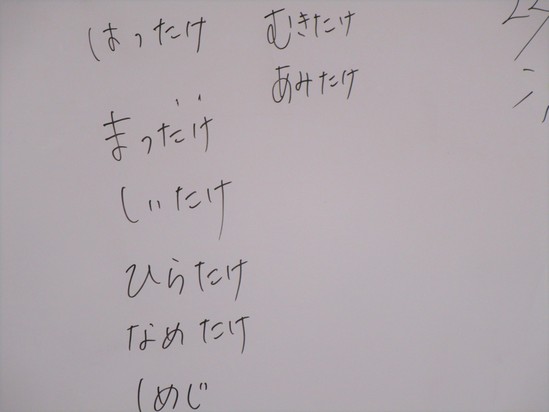 はったけ
まつだけ
しいたけ
ひらたけ
なめたけ
しめじ
むきたけ
あみたけ